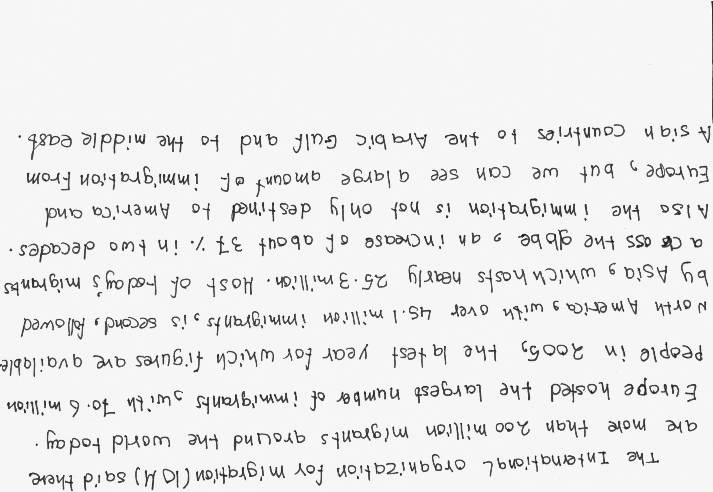 The International organization for migration (IOM) said there
are more than 200 million migrants around the world today.
Europe hosted the largest number of immigrants, with 70.6 million
People in 2005, the latest year for which figures are available
North America, with over 45.1 million immigrants, is second, followed
by Asia, which hosts nearly 25.3 million. Most of today's migrants
across the globe, an increase of about 37 %. in two decades.
Also the immigration is not only destined to America and
Europe, but we can see a large amount of immigration From
Asian countries to the Arabic Gulf and to the middle east.